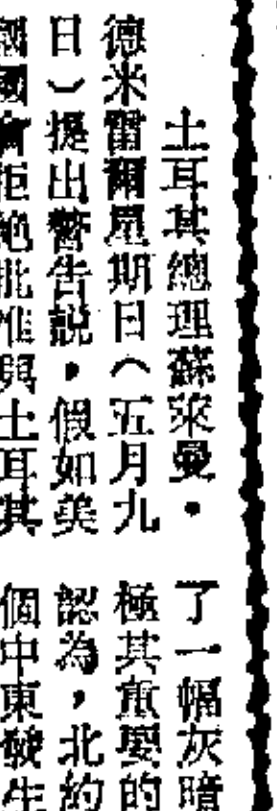 土耳其總理蘇萊曼·
德米雷爾星期日（五月九
日）提出警告説，假如美
國國會拒絶批准與土耳其
了一幅灰暗
極其重要的
認為，北約
個中東發生